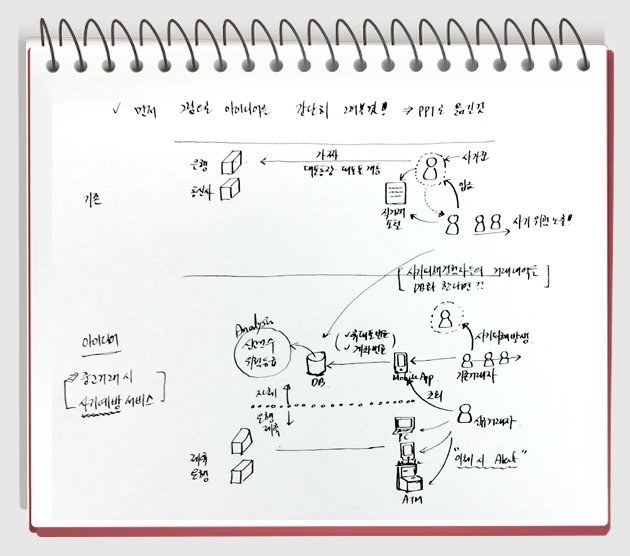 ✓ 먼저 그림으로 아이디어를 간단히 그려볼것!! ⇒ PPT로 옮길것
은행
통신사
가짜
대포통장·대포폰 개통
사기꾼
입금
기존
직거래
포털
사기 위험 노출!!
[사기피해경험자들의 거래내역을
DB화 한다면??]
Analysis
위험등급
✓휴대폰번호
✓계좌번호
사기피해발생
아이디어
DB
Mobile App
기존거래자
⇒ 중고거래 시
사기예방 서비스
자체
조회
은행
제휴
PC
신규거래자
제휴
은행
"이체 시 Alert"
ATM